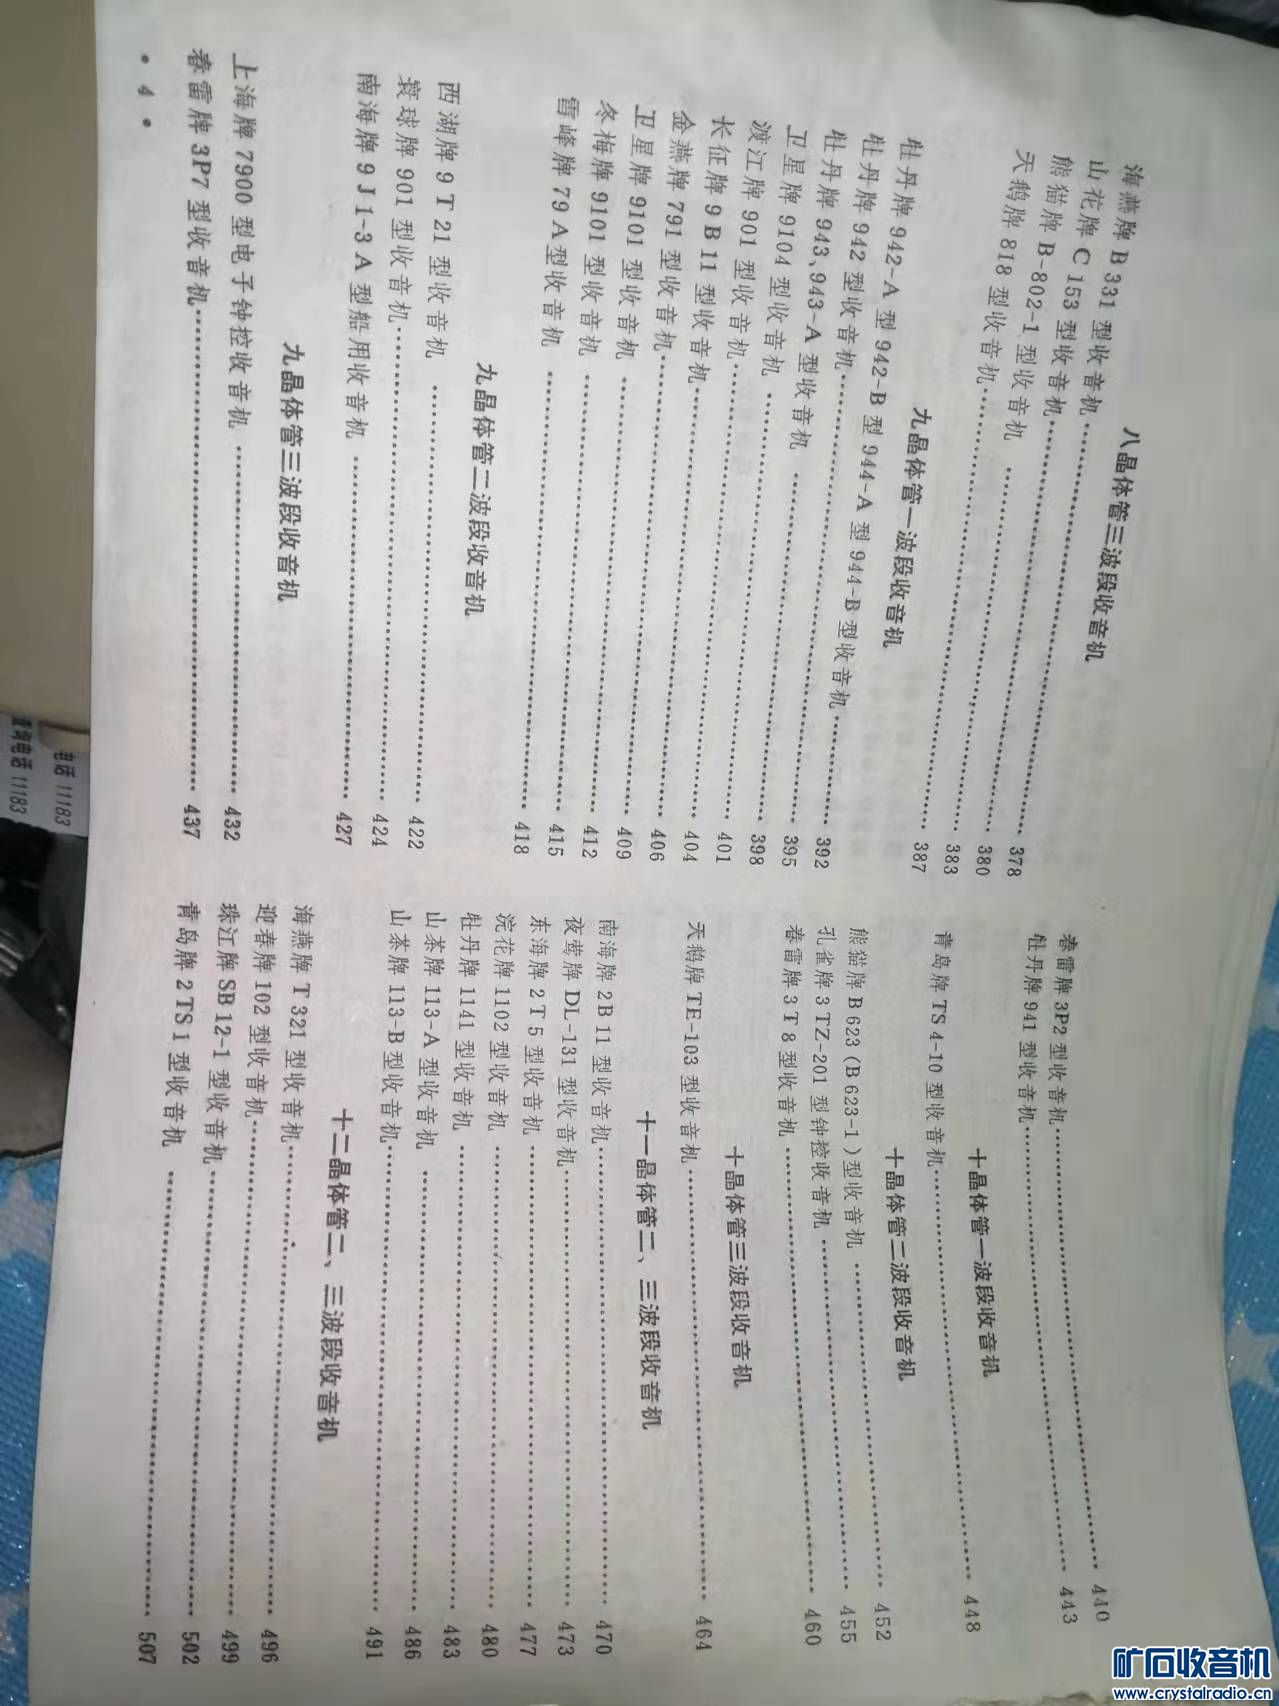 八晶体管三波段收音机
海燕牌B331型收音机……378
山花牌C153型收音机……380
熊猫牌B-802-1型收音机……383
天鹅牌818型收音机……387
九晶体管一波段收音机
牡丹牌942-A型942-B型944-A型944-B型收音机……392
牡丹牌942型收音机……395
牡丹牌943、943-A型收音机……398
卫星牌9104型收音机……401
渡江牌901型收音机……404
长征牌9B11型收音机……406
金燕牌791型收音机……409
卫星牌9101型收音机……412
冬梅牌9101型收音机……415
雪峰牌79A型收音机……418
九晶体管二波段收音机
西湖牌9T21型收音机……422
寰球牌901型收音机……424
南海牌9J1-3A型船用收音机……427
九晶体管三波段收音机
上海牌7900型电子钟控收音机……432
春雷牌3P7型收音机……437
• 4 •
春雷牌3P2型收音机……440
牡丹牌941型收音机……443
十晶体管一波段收音机
青岛牌TS4-10型收音机……448
十晶体管二波段收音机
熊猫牌B623(B623-1)型收音机……452
孔雀牌3TZ-201型钟控收音机……455
春雷牌3T8型收音机……460
十晶体管三波段收音机
天鹅牌TE-103型收音机……464
十一晶体管二、三波段收音机
南海牌2B11型收音机……470
夜莺牌DL-131型收音机……473
东海牌2T5型收音机……477
浣花牌1102型收音机……480
牡丹牌1141型收音机……483
山茶牌113-A型收音机……486
山茶牌113-B型收音机……491
十二晶体管二、三波段收音机
海燕牌T321型收音机……496
迎春牌102型收音机……499
珠江牌SB12-1型收音机……502
青岛牌2TS1型收音机……507
电话 11183
查询电话 11183
矿石收音机
www.crystalradio.cn